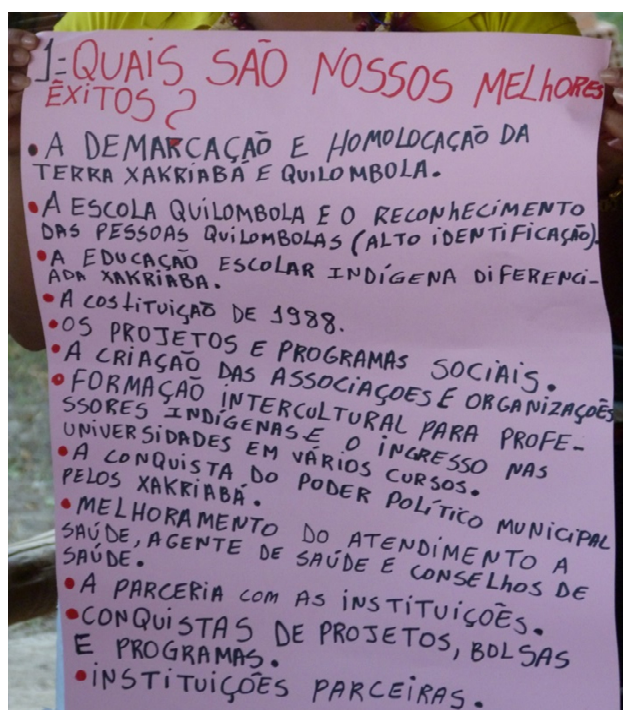 1=QUAIS SÃO NOSSOS MELHORES
ÊXITOS?
• A DEMARCAÇÃO E HOMOLOCAÇÃO DA
TERRA XAKRIABÁ E QUILOMBOLA.
• A ESCOLA QUILOMBOLA E O RECONHECIMENTO
DAS PESSOAS QUILOMBOLAS (ALTO IDENTIFICAÇÃO).
• A EDUCAÇÃO ESCOLAR INDÍGENA DIFERENCI-
ADA XAKRIABA.
• A COSTITUIÇÃO DE 1988.
• OS PROJETOS E PROGRAMAS SOCIAIS.
• A CRIAÇÃO DAS ASSOCIAÇOES E ORGANIZAÇOÊS
• FORMAÇÃO INTERCULTURAL PARA PROFE-
SSORES INDÍGENAS E O INGRESSO NAS
UNIVERSIDADES EM VÁRIOS CURSOS.
• A CONQUISTA DO PODER POLÍTICO MUNICIPAL
PELOS XAKRIABÁ.
• MELHORAMENTO DO ATENDIMENTO A
SAÚDE, AGENTE DE SAÚDE E CONSELHOS DE
SAÚDE.
• A PARCERIA COM AS INSTITUIÇÕES.
• CONQUISTAS DE PROJETOS, BOLSAS
E PROGRAMAS.
• INSTITUIÇÕES PARCEIRAS.